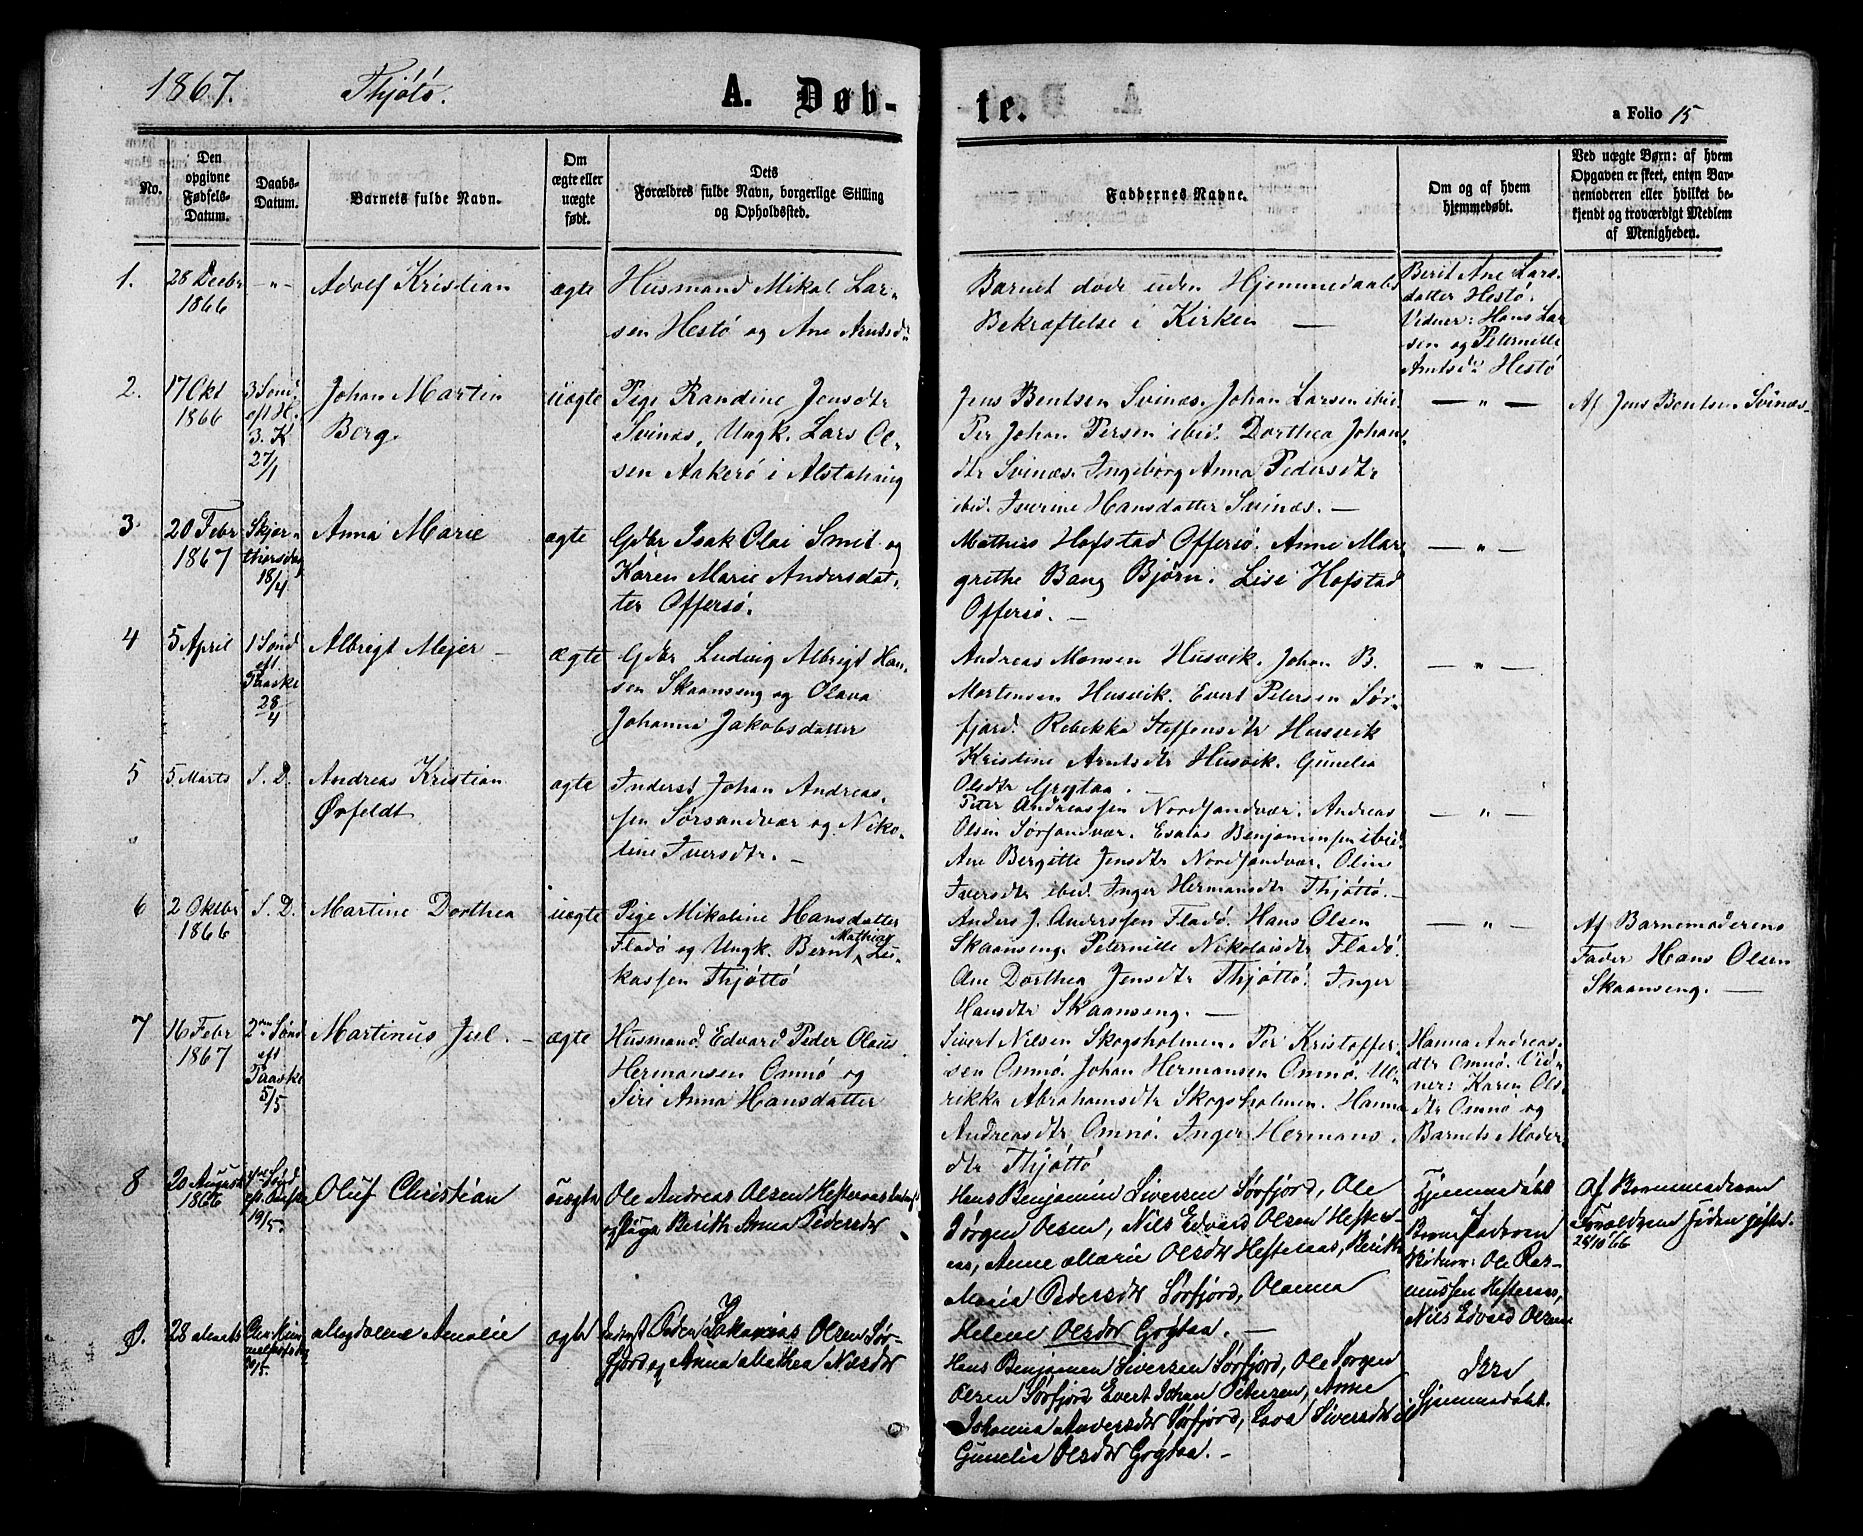 1867. Thjötö. A. Døb-
te. a Folio 15
No.
Den
opgivne
Fødsels-
Datum.
Daabs-
Datum.
Barnets fulde Navn.
Om
ægte eller
uægte
født.
Dets
Forældres fulde Navn, borgerlige Stilling
og Opholdssted.
Faddernes Navne.
Om og af hvem
hjemmedøbt.
Ved uægte Børn: af hvem
Opgaven er skeet, enten Bar-
nemoderen eller hvilket be-
kjendt og troværdigt Medlem
af Menigheden.
1.
28 Decbr
1866
-"-
Adolf Kristian
ægte
Husmand Mikal Lar-
sen Hestö og Ane Arntsdr
Barnet døde uden Hjemmedaabs
Bekræftelse i Kirken —
Berit Ane Lars-
datter Hestö.
Vidner: Hans Lar
sen og Peternille
Arntsdr Hestö
2.
17 Okt
1866
3 Sønd
eft H.
3. K.
27/1
Johan Martin
Berg.
uægte
Pige Randine Jensdtr
Svinæs, Ungk. Lars Ol-
sen Aakerö i Alstahaug
Jens Bentsen Svinæs. Johan Larsen ibid.
Per Johan Persen ibid. Dorthea Johans-
dtr Svinæs. Ingeborg Anna Pedersdtr
ibid. Iverine Hansdatter Svinæs. —
— " —
Af Jens Bentsen Svinæs-
3
20 Febr
1867
Skjær-
thorsdag
18/4
Anna Marie
ægte
Gdbr Isak Olai Smit og
Karen Marie Andersdat-
ter Offersö.
Mathias Hofstad Offersö. Anne Mar-
grethe Bang Bjørn. Lise Hofstad
Offersö. —
— " —
4
5 April
1 Sønd
eft
Paaske
28/4
Albrigt Mejer —
ægte
Gdbr Ludvig Albrigt Han-
sen Skaanseng og Olava
Johanna Jakobsdatter
Andreas Monsen Husvik. Johan B.
Mortensen Husvik. Evert Petersen Sør-
fjord. Rebekka Steffensdtr Husvik
Kristine Arntsdtr Husvik. Gunelia
Olsdtr Grytaa. —
— " —
5
5 Marts
S. D.
Andreas Kristian
Øvfeldt
ægte
Inderst Johan Andreas-
sen Sørsandvær og Niko-
line Iversdtr. —
Peter Andreassen Nordsandvær. Andreas
Olsen Sørsandvær. Esaias Benjaminsen ibid.
Ane Bergitte Jensdtr Nordsandvær. Oline
Iversdtr ibid. Inger Hermansdtr Thjöttö. —
— " —
6
2 Oktbr
1866
S. D.
Martine Dorthea
uægte
Pige Mikaline Hansdatter
Fladö og Ungk. Bernt Mathias Lu-
kassen Thjöttö
Anders J. Anderssen Fladö. Hans Olsen
Skaanseng. Peternille Nikolaisdtr Fladö.
Ane Dorthea Jensdtr Thjöttö. Inger
Hansdtr Skaanseng. —
— " —
Af Barnemoderens
Fader Hans Olsen
Skaanseng. —
7
16 Febr
1867
2den Sønd
eft
Paaske
5/5
Martinus Juel. —
ægte
Husmand Edvard Peder Olaus
Hermansen Omnö og
Siri Anna Hansdatter
Sivert Nilsen Skogsholmen. Per Kristoffer-
sen Omnö. Johan Hermansen Omnö. Ul-
rikka Abrahamsdtr Skogsholmen. Hanna
Andreasdtr Omnö. Inger Hermans-
dtr Thjöttö
Hanna Andreas-
dtr Omnö. Vid-
ner: Karen Ols-
dtr Omnö og
Barnets Moder.
8
20 August
1866
19/5.
Oluf Christian
uægte
Ole Andreas Olsen Hefternæs
og Pige Berith Anna Pedersdtr
Hans Benjamin Siversen Sørfjord, Ole
Jørgen Olsen, Nils Edvard Olsen Heftern-
æs, Anne Marie Olsdtr Hefternæs, Berith
Maria Pedersdtr Sørfjord, Olanna
Helene Olsdtr Grytaa. —
Hjemmedøbt
Vidner: Ole Ras-
mussen Hefternæs,
Nils Edvard Olsen
Af Barnemoderen
Forældrene siden gifte.
28/10 66
9.
28 Marts
Magdalene Amalie
ægte
Inderst Peder Zakarias Olsen Sør-
fjord og Anna Mathea Nilsdtr
Hans Benjamin Siversen Sørfjord, Ole Jørgen
Olsen Sørfjord, Evert Johan Petersen, Anne
Johanna Andersdtr Sørfjord, Siversdtr
Gunelia Olsdtr Grytaa. —
Ikke
Hjemmedøbt.